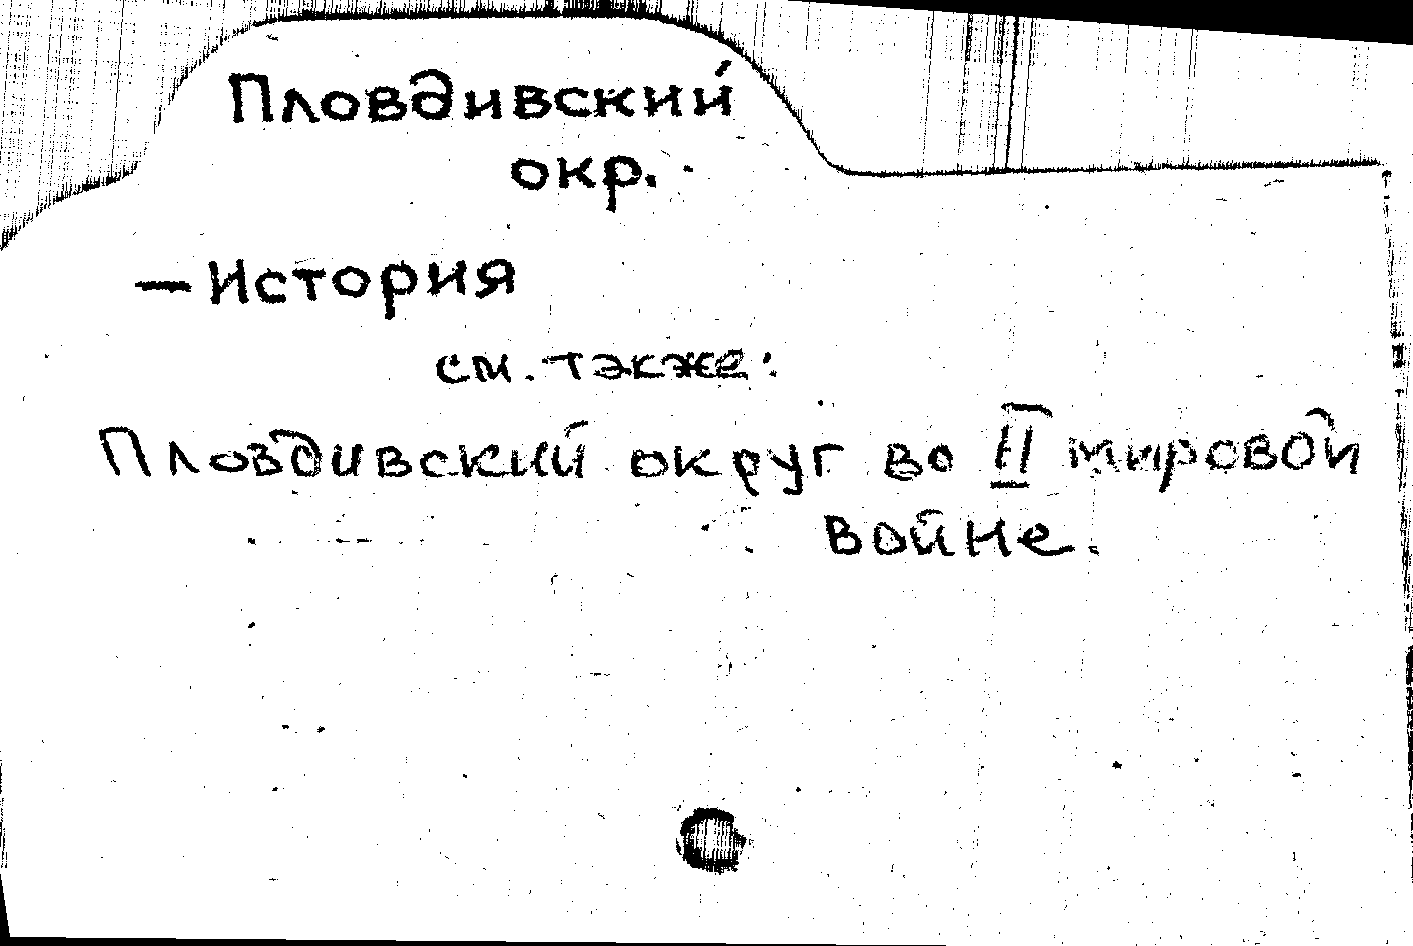 Пловдивский
окр.
— История
см. также:
Пловдивский округ во II мировой
войне.